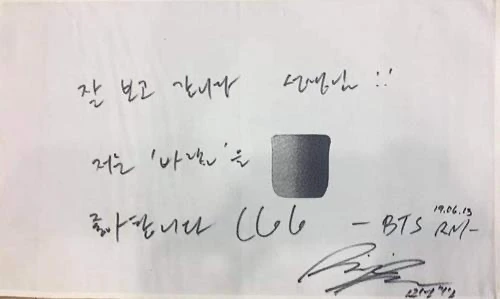 잘 보고 갑니다 선생님 !!
저는 '바람'을
좋아합니다 - BTS RM
19.06.13